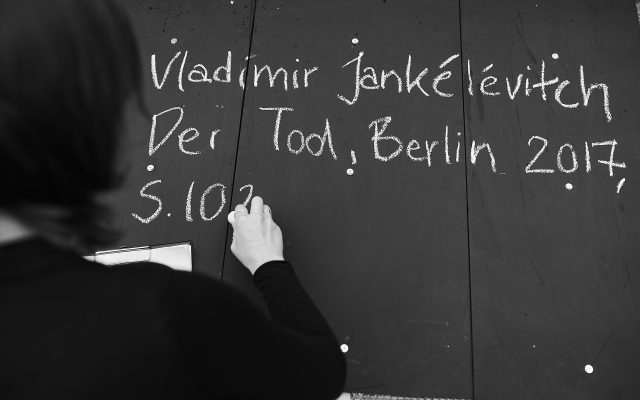 Vladimir Jankélévitch
Der Tod, Berlin 2017,
S. 102